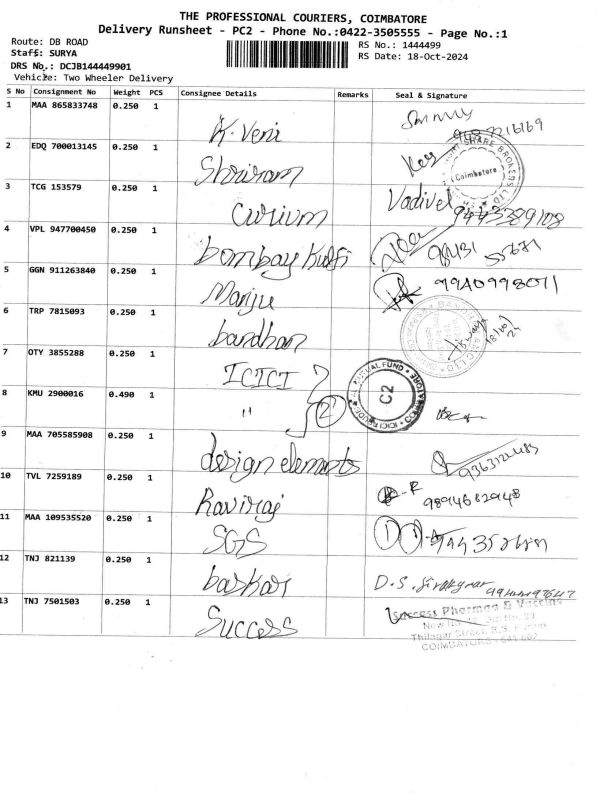 THE PROFESSIONAL COURIERS, COIMBATORE
Delivery Runsheet - PC2 - Phone No.:0422-3505555 - Page No.:1
Route: DB ROAD RS No.: 1444499
Staff: SURYA RS Date: 18-Oct-2024
DRS No.: DCJB144449901
Vehicle: Two Wheeler Delivery
S No Consignment No Weight PCS Consignee Details Remarks Seal & Signature
1 MAA 865833748 0.250 1 K. Veni
2 EDQ 700013145 0.250 1 Shriram SHARE BROKERS LTD Coimbatore
3 TCG 153579 0.250 1 Curium Vadivel 9443389108
4 VPL 947700450 0.250 1 bombay Kulfi
5 GGN 911263840 0.250 1 Manju 9940998071
6 TRP 7815093 0.250 1 bandhan
7 OTY 3855288 0.250 1 ICICI MUTUAL FUND C2
8 KMU 2900016 0.490 1 " 2
9 MAA 705585908 0.250 1 design elements
10 TVL 7259189 0.250 1 Raviraj 9894682948
11 MAA 109535520 0.250 1 SGS
12 TNJ 821139 0.250 1 baskar D.S.
13 TNJ 7501503 0.250 1 Success Success Pharma & Vaccine
COIMBATORE